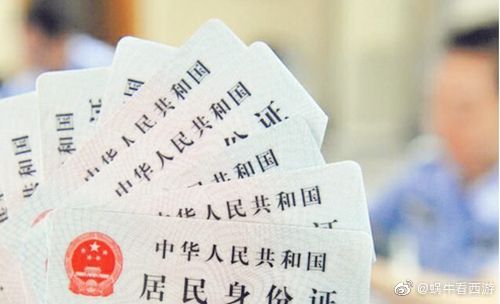 中华人民共和国
中华人民共和国
份证
中华人民共和国
中华人民共和国
中华人民共和国
居民身份证
@蜗牛看西游